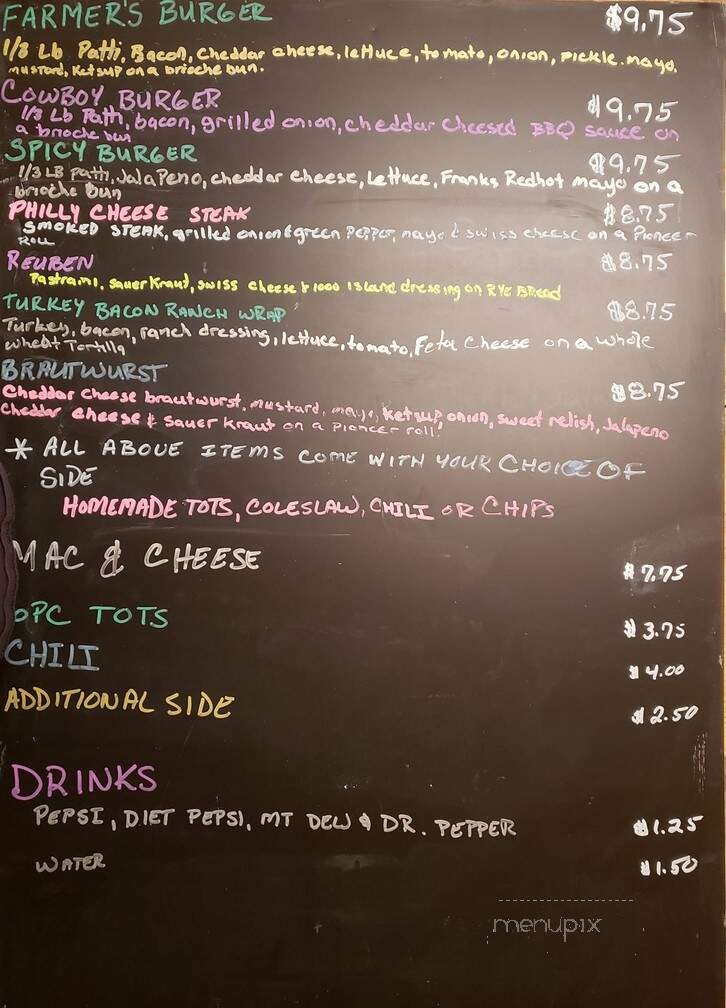 FARMER'S BURGER $9.75
1/3 Lb Patti, Bacon, cheddar cheese, lettuce, tomato, onion, pickle, mayo,
mustard, ketsup on a brioche bun.
COWBOY BURGER $9.75
1/3 Lb Patti, bacon, grilled onion, cheddar cheese & BBQ sauce on
a brioche bun
SPICY BURGER $9.75
1/3 LB Patti, JalaPeno, cheddar cheese, Lettuce, Franks Redhot mayo on a
brioche bun
PHILLY CHEESE STEAK $8.75
SMOKED STEAK, grilled onion & green PEPPER, mayo & swiss cheese on a Pioneer
ROLL
REUBEN $8.75
Pastrami, sauer Kraut, swiss cheese & 1000 Island dressing on RYE BREAD
TURKEY BACON RANCH WRAP $8.75
Turkey, bacon, ranch dressing, lettuce, tomato, Feta cheese on a whole
wheat Tortilla
BRAUTWURST $8.75
Cheddar cheese brautwurst, mustard, mayo, ketsup, onion, sweet relish, Jalapeno
cheddar cheese & sauer kraut on a pioneer roll.
* ALL ABOVE ITEMS COME WITH YOUR CHOICE OF
SIDE
HOMEMADE TOTS, COLESLAW, CHILI OR CHIPS
MAC & CHEESE $7.75
OPC TOTS $3.75
CHILI $4.00
ADDITIONAL SIDE $2.50
DRINKS
PEPSI, DIET PEPSI, MT DEW & DR. PEPPER $1.25
WATER $1.50
menupix